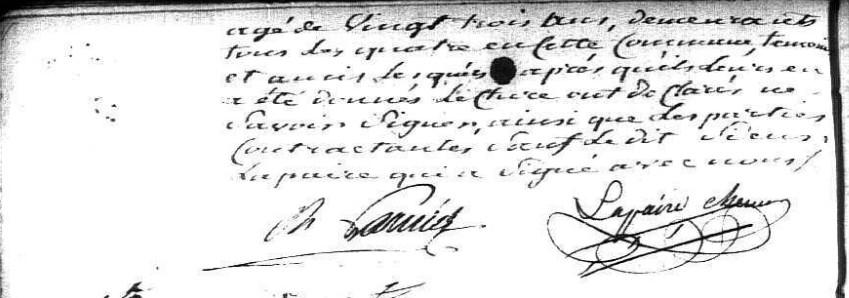 agé de Vingt trois ans, demeurants
tous les quatre en Cette Commune, temoins
et amis lesquels après qu'il leurs en
a été donnés lecture ont declarés ne
Savoir Signer, ainsi que les parties
Contractantes Sauf le dit Sieur
Lapaire qui a Signé avec nous/
Lapaire